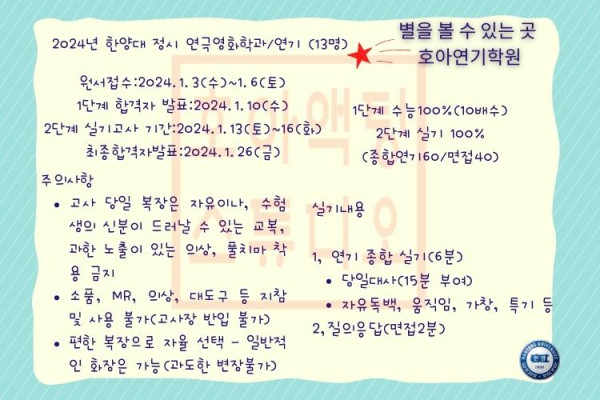 2024년 한양대 정시 연극영화학과/연기 (13명)
별을 볼 수 있는 곳
호아연기학원
원서접수:2024.1.3(수)~1.6(토)
1단계 합격자 발표:2024.1.10(수)
2단계 실기고사 기간:2024.1.13(토)~16(화)
최종합격자발표:2024.1.26(금)
1단계 수능100%(10배수)
2단계 실기 100%
(종합연기60/면접40)
주의사항
• 고사 당일 복장은 자유이나, 수험
생의 신분이 드러날 수 있는 교복,
과한 노출이 있는 의상, 풀치마 착
용 금지
• 소품, MR, 의상, 대도구 등 지참
및 사용 불가(고사장 반입 불가)
• 편한 복장으로 자율 선택 - 일반적
인 화장은 가능(과도한 변장불가)
실기내용
1, 연기 종합 실기(6분)
• 당일대사(15분 부여)
• 자유독백, 움직임, 가창, 특기 등
2,질의응답(면접2분)
호아액팅
스튜디오